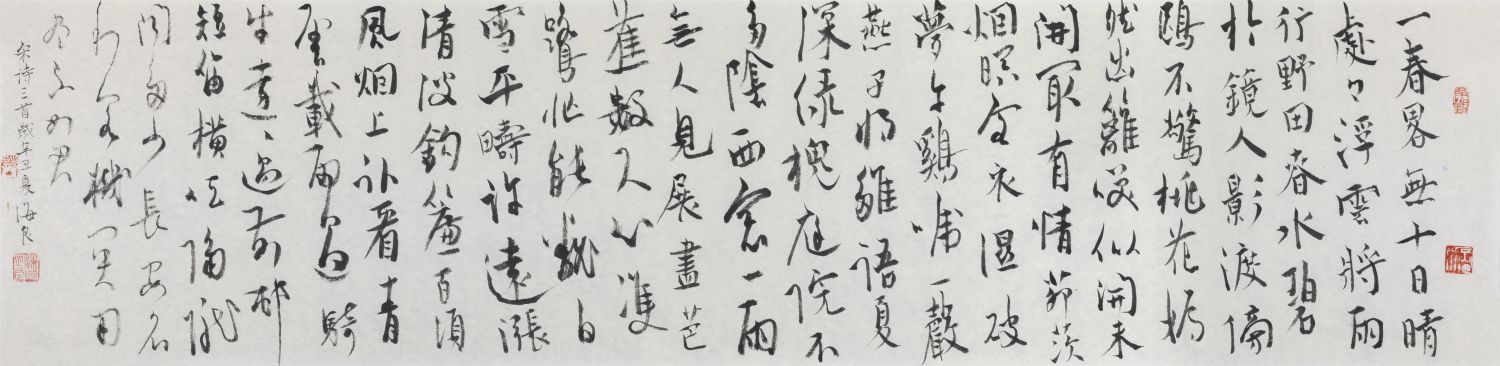 一春畧無十日晴
處々浮雲將雨
行野田春水碧
於鏡人影渡傍
鷗不驚桃花嫣
然出籬笑似開未
開最有情茆茨
烟暝客衣濕破
夢午雞啼一聲
燕子將雛語夏
深綠槐庭院不
多陰西窗一雨
無人見展盡芭
蕉數尺心雙
鷺忙能翻白
雪平疇許遠漲
清波鈎簾百頃
風烟上卧看青
雲載雨過騎
牛遠々過前邨
短笛橫吹隔隴
聞多少長安名
利客機関用
盡不如君
宋詩三首歲辛丑夏海良